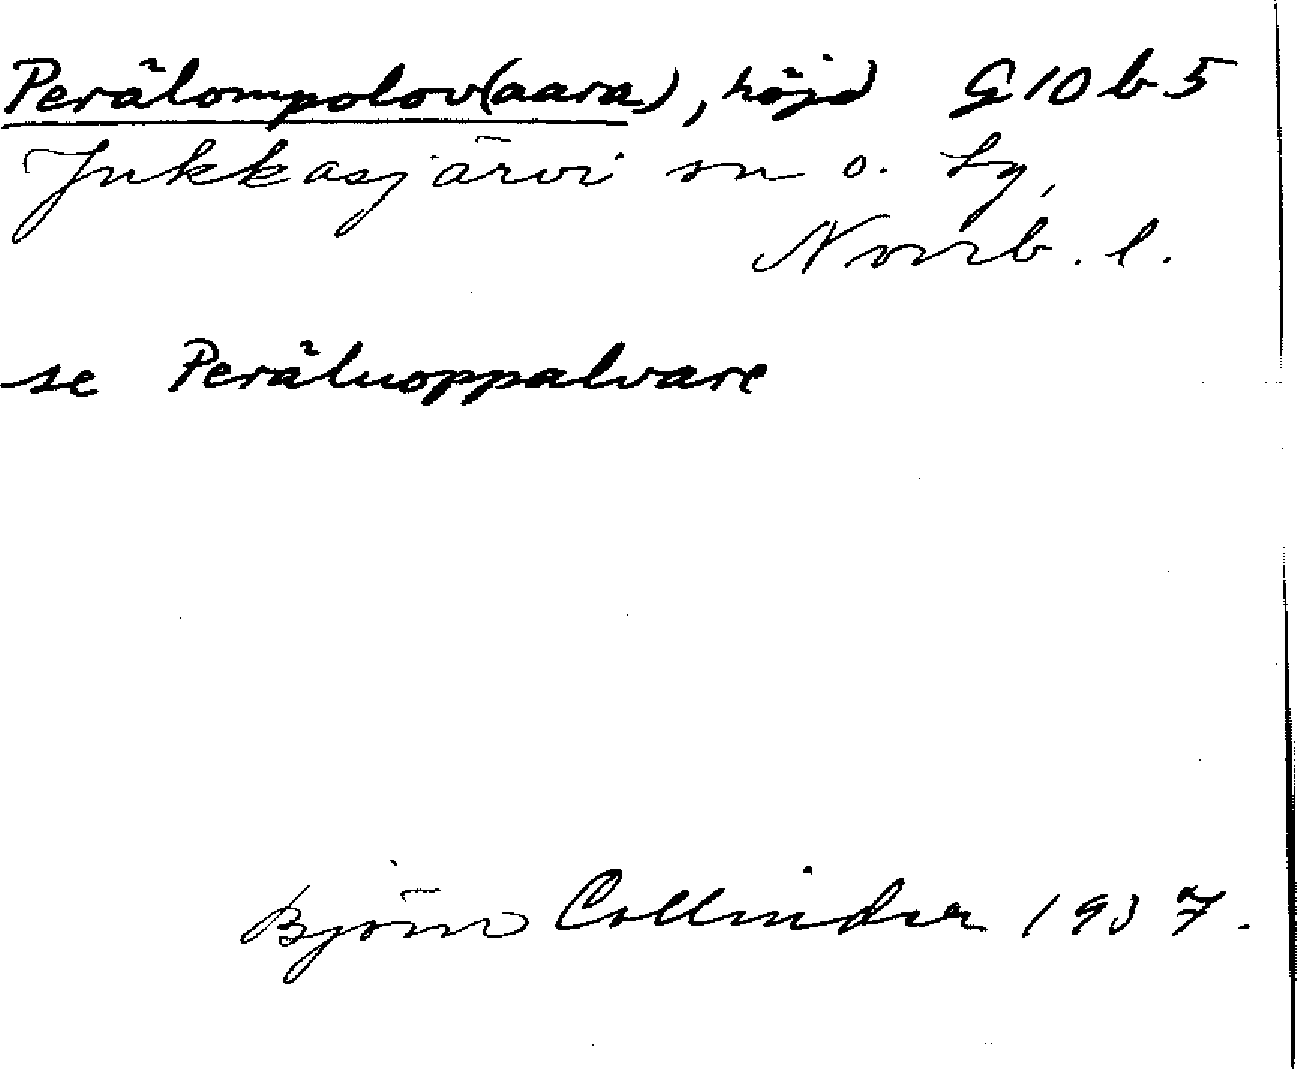 Perälompolov(aara), höjd G10b5
Jukkasjärvi sn o. tg,
Norrb. l.
se Peräluoppalvare
Björn Collinder 1937.